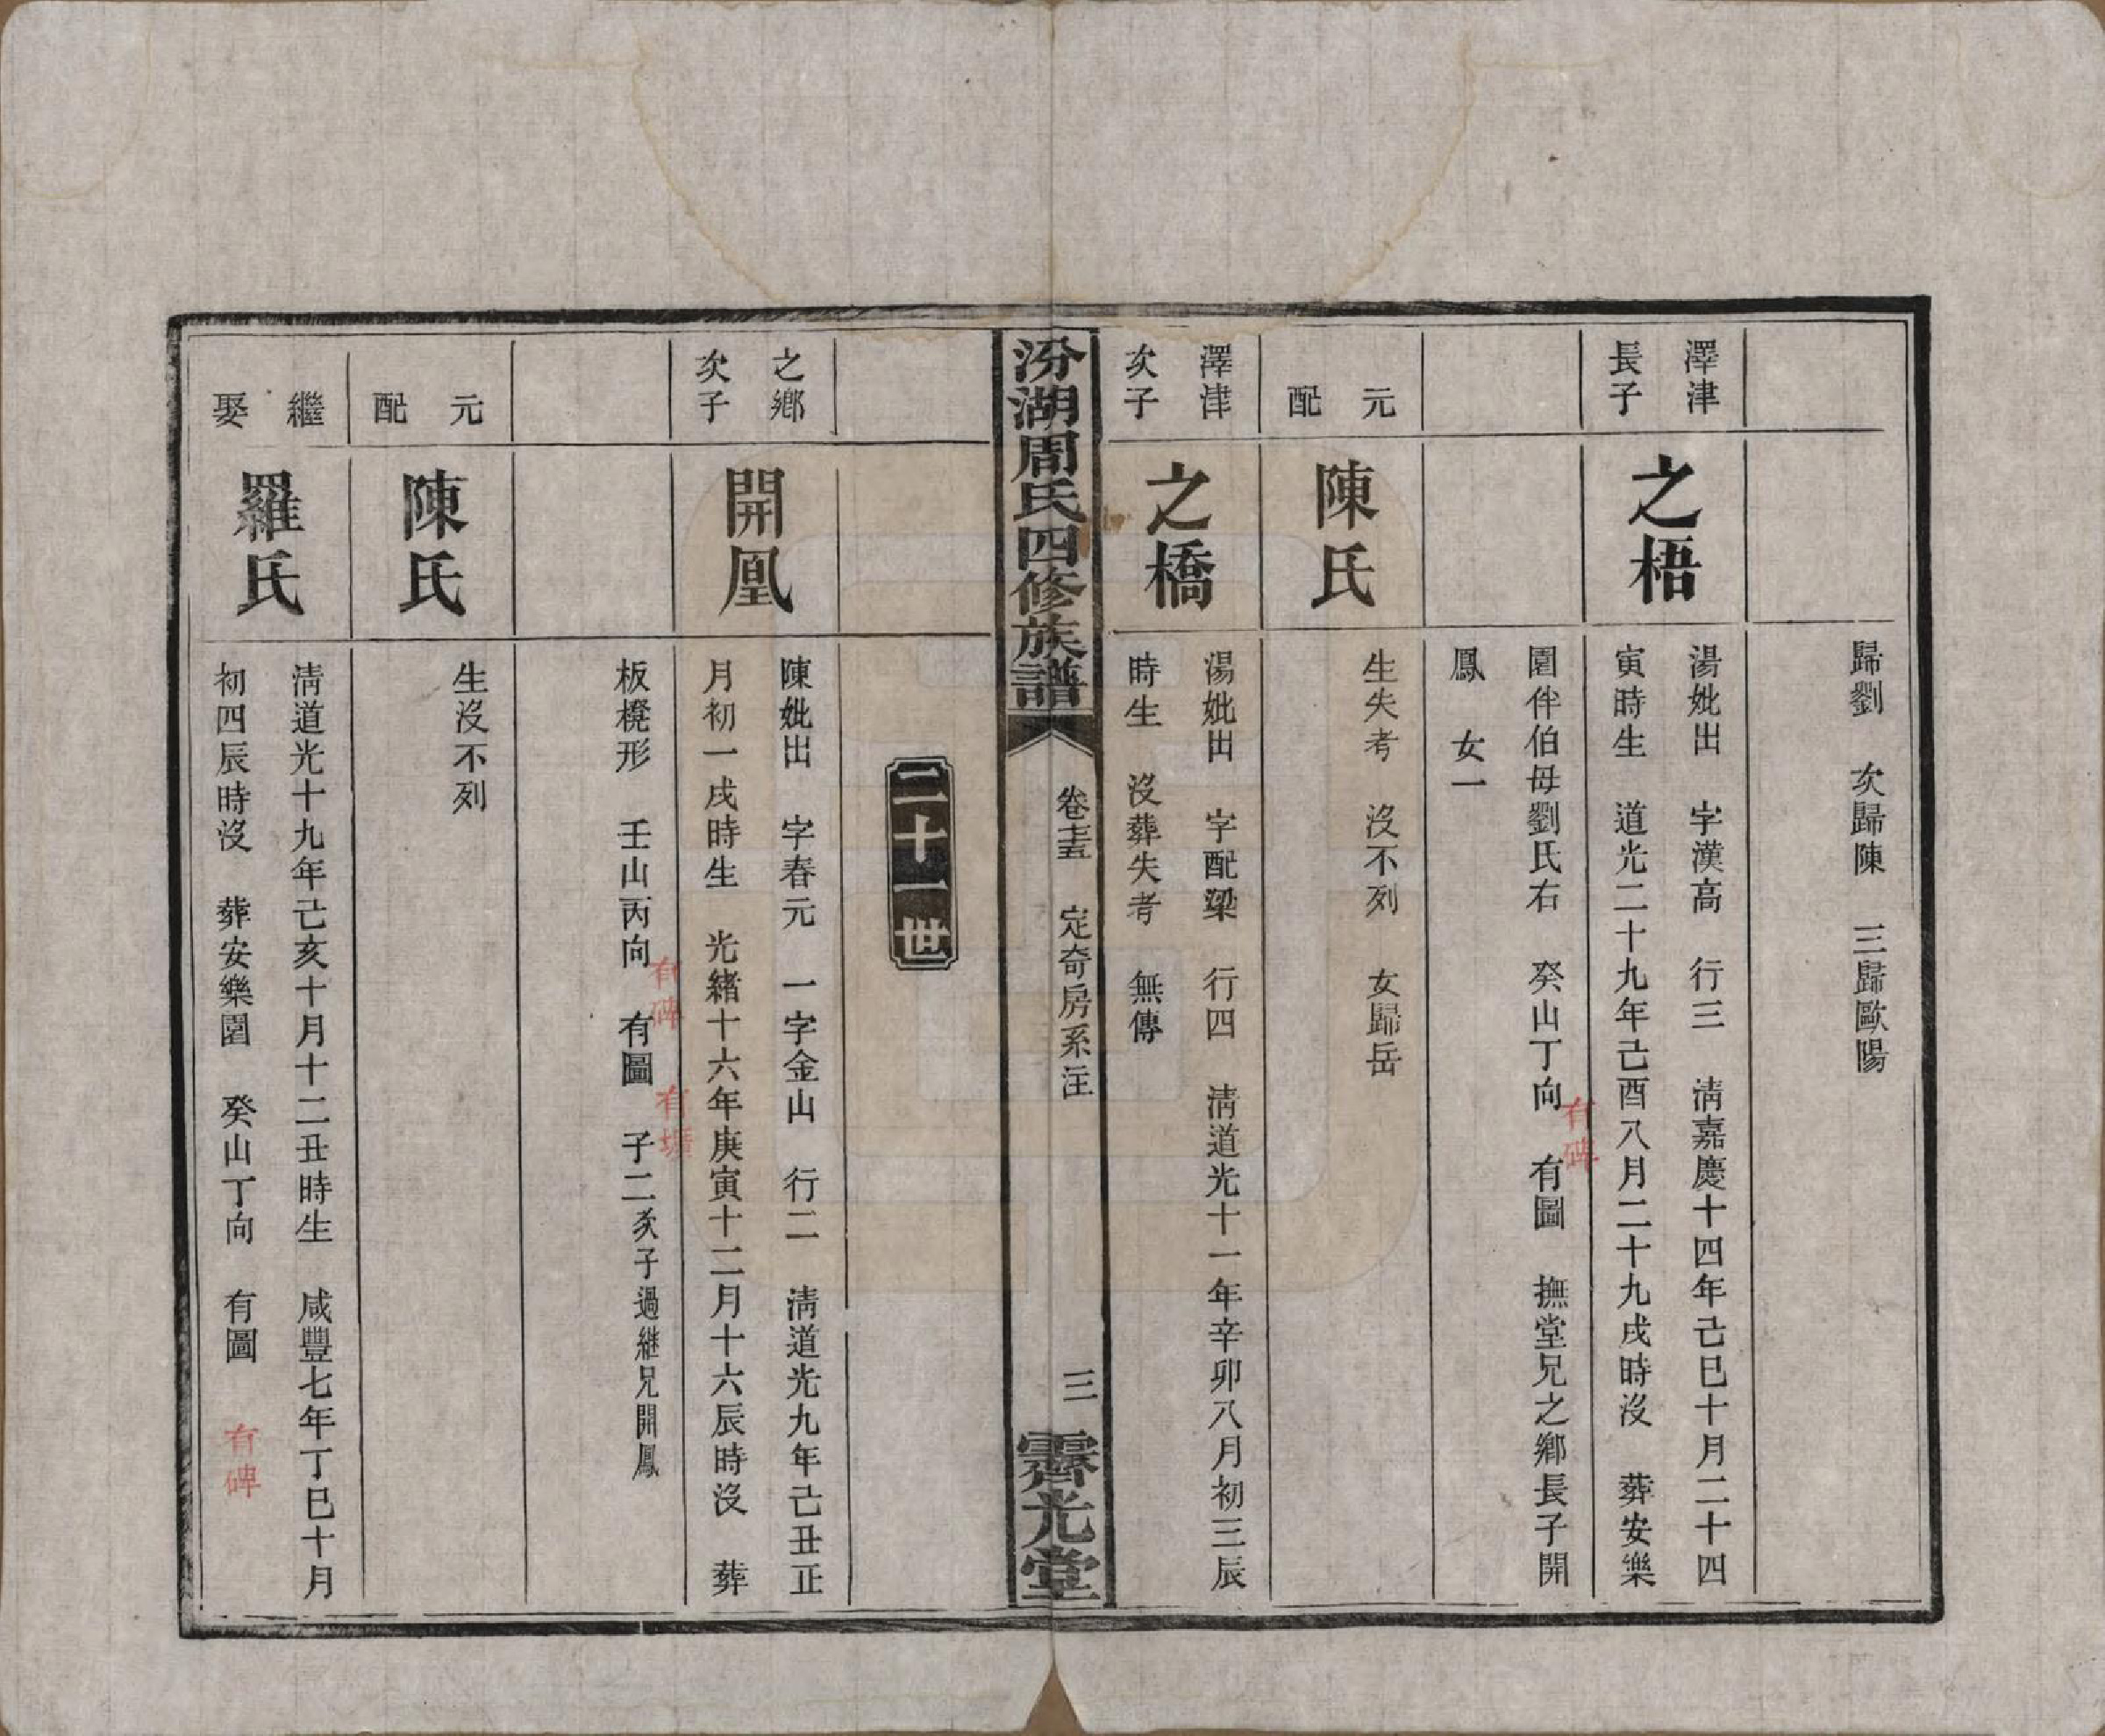 歸劉　次歸陳　三歸歐陽
澤津
長子
之梧
湯妣出　字漢高　行三　淸嘉慶十四年己巳十月二十四
寅時生　道光二十九年己酉八月二十九戌時沒　葬安樂
園伴伯母劉氏右　癸山丁向　有圖　撫堂兄之鄉長子開
有碑
鳳　女一
元
配
陳氏
生失考　沒不列　女歸岳
澤津
次子
之橋
湯妣出　字配梁　行四　淸道光十一年辛卯八月初三辰
時生　沒葬失考　無傳
汾湖周氏四修族譜
卷十五　定奇房系注
三
霽光堂
二十一世
之鄉
次子
開凰
陳妣出　字春元　一字金山　行二　淸道光九年己丑正
月初一戌時生　光緒十六年庚寅十二月十六辰時沒　葬
有碑　有墳
板櫈形　壬山丙向　有圖　子二次子過繼兄開鳳
元
配
陳氏
生沒不列
繼
娶
羅氏
淸道光十九年己亥十月十二丑時生　咸豐七年丁巳十月
初四辰時沒　葬安樂園　癸山丁向　有圖
有碑